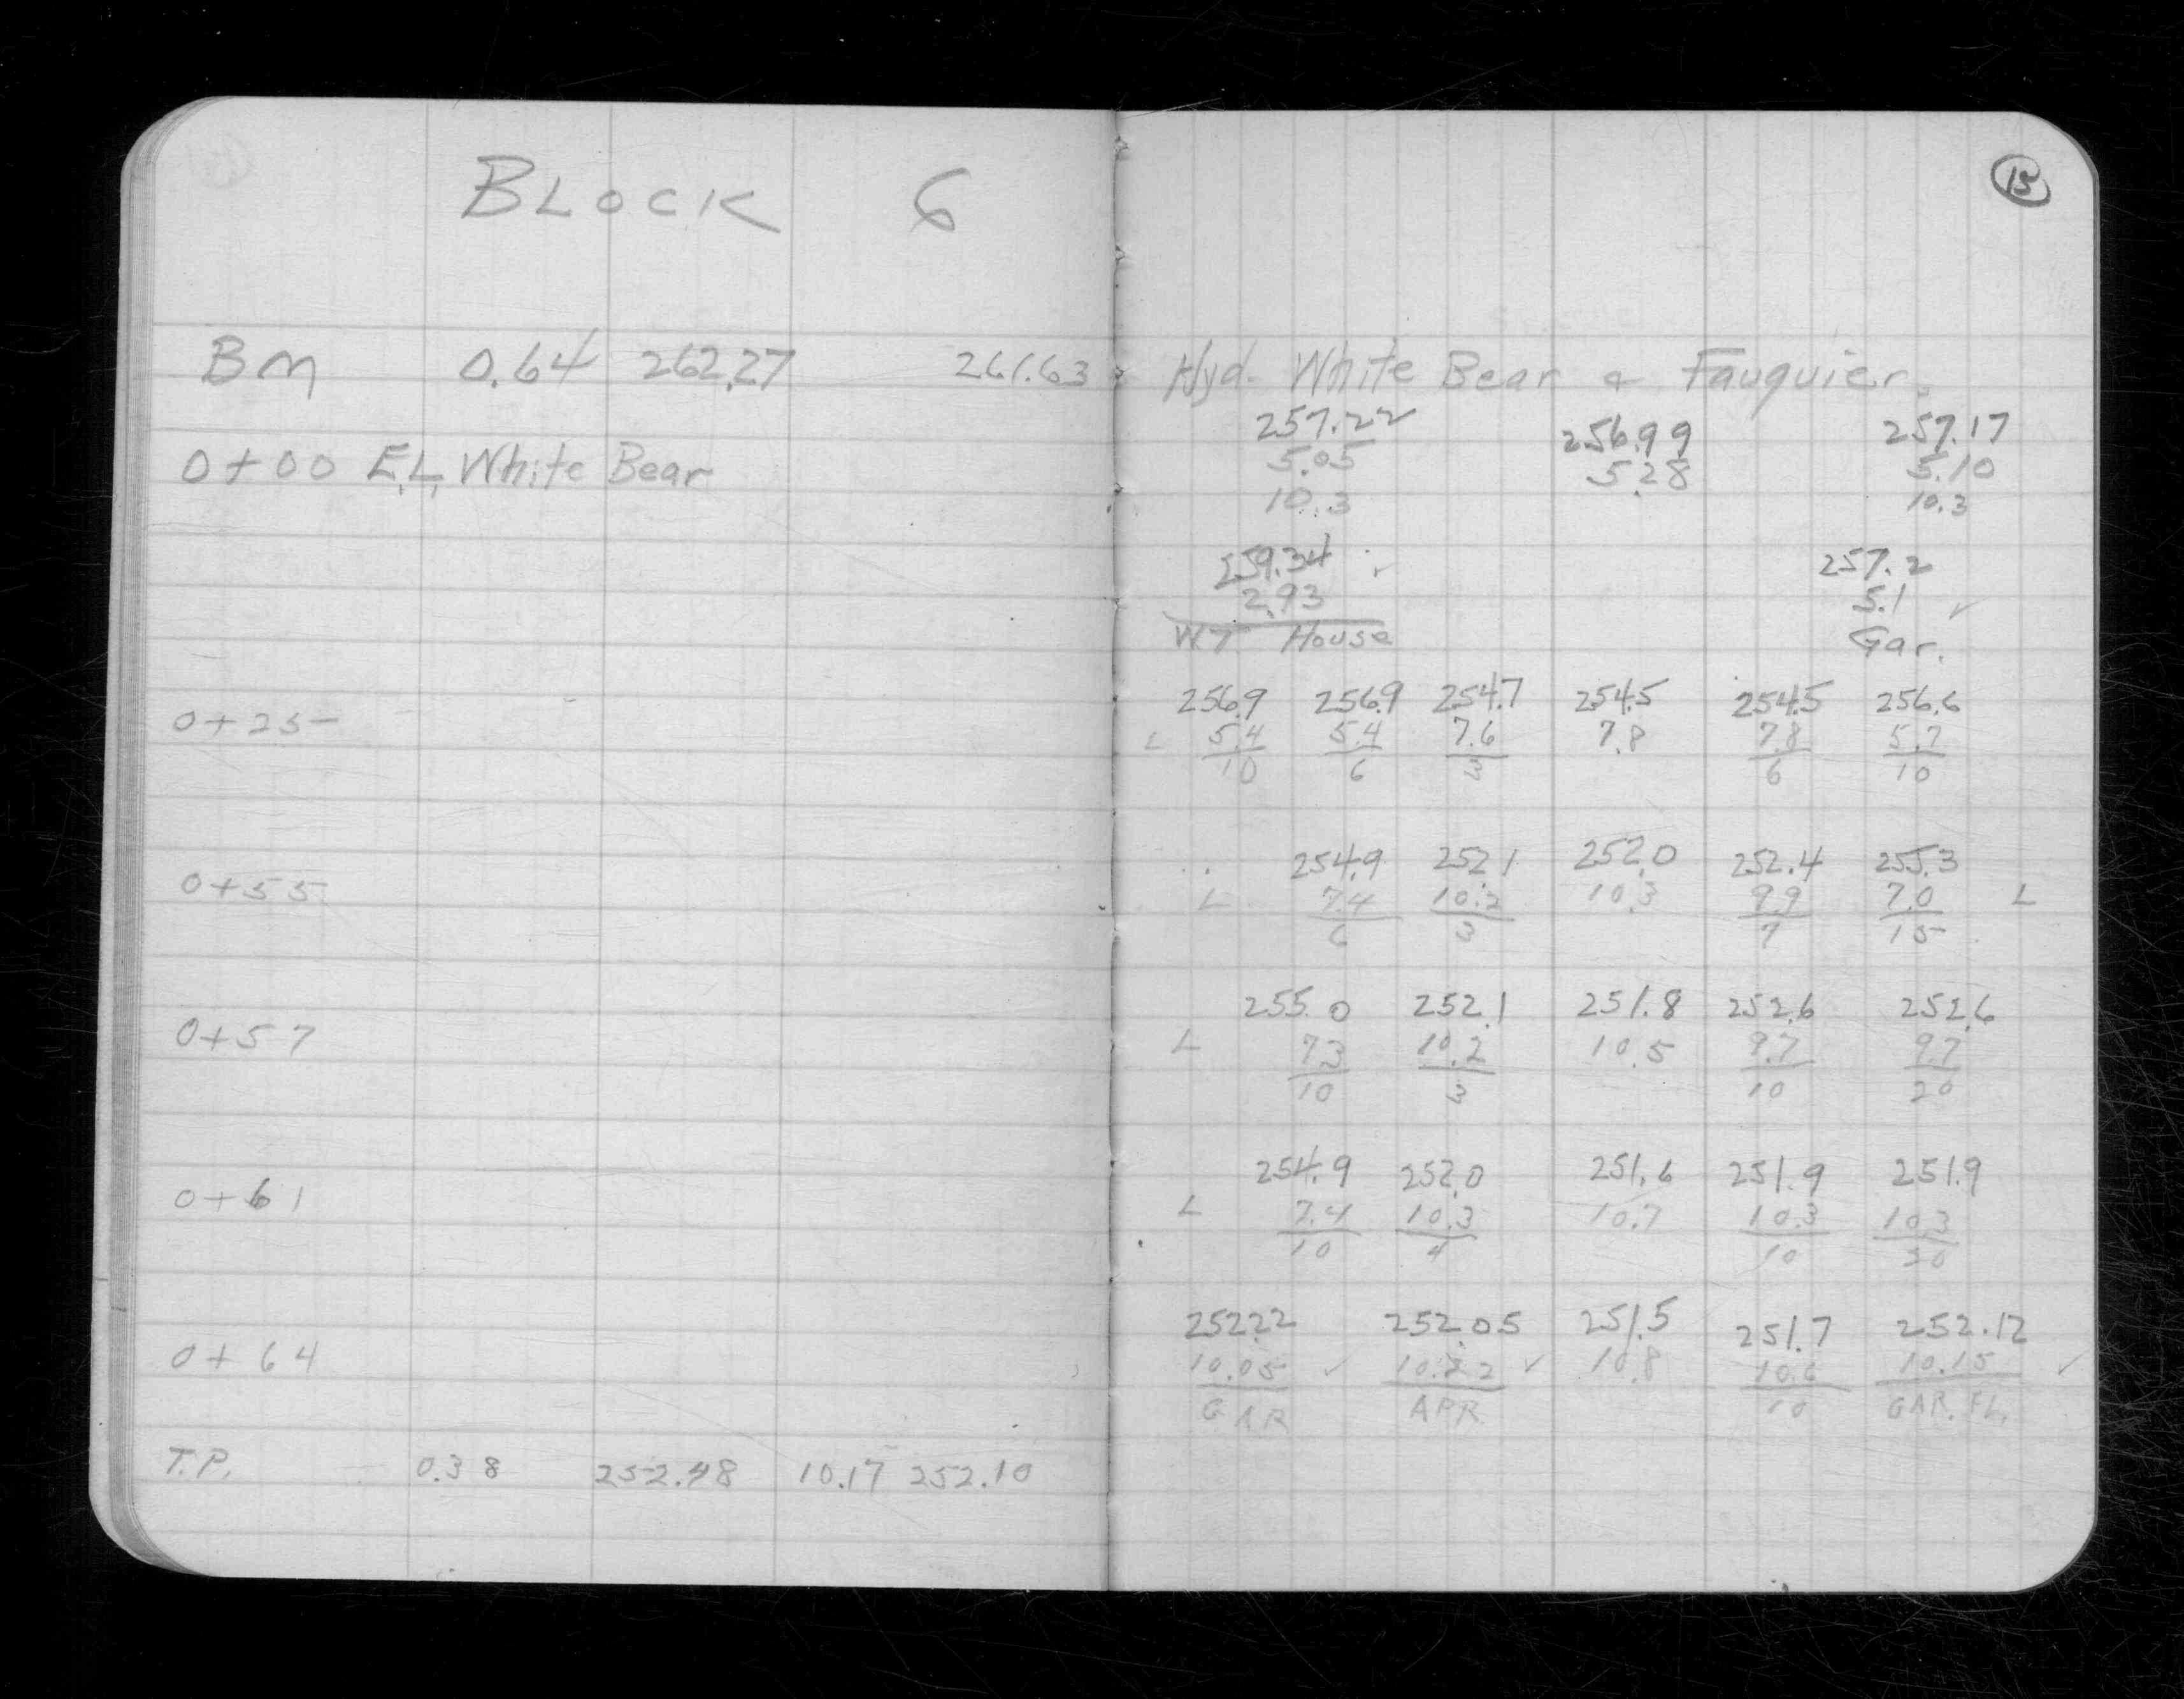 BLOCK 6
15
BM 0.64 262.27 261.63 Hyd. White Bear & Fauquier
257.22 256.99 257.17
0+00 E.L. White Bear 5.05 5.28 5.10
10.3 10.3
259.34 257.2
2.93 5.1
W.T. House Gar.
256.9 256.9 254.7 254.5 254.5 256.6
0+25 L 5.4 5.4 7.6 7.8 7.8 5.7
10 6 3 6 10
254.9 252.1 252.0 252.4 255.3
0+55 L 7.4 10.2 10.3 9.9 7.0 L
6 3 7 15
255.0 252.1 251.8 252.6 252.6
0+57 L 7.3 10.2 10.5 9.7 9.7
10 3 10 20
254.9 252.0 251.6 251.9 251.9
0+61 L 7.4 10.3 10.7 10.3 10.3
10 4 10 20
252.22 252.05 251.5 251.7 252.12
0+64 10.05 10.22 10.8 10.6 10.15
GAR APR. 10 GAR. FL.
T.P. 0.38 252.48 10.17 252.10